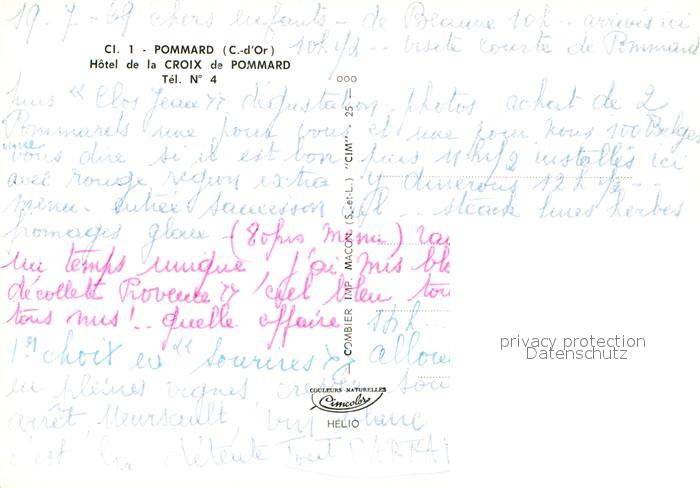 19-7-69 chers enfants - de Beaune 10h.. arrivés ici
10h 1/2 -- visite courte de Pommard
Cl. 1 - POMMARD (C.-d'Or)
Hôtel de la CROIX de POMMARD
Tél. N° 4
puis "Clos dégustation - photos achat de 2
Pommards une pour vous et une pour nous 100 Belges
vous dire si il est bon puis 11h 1/2 installés ici
avec rouge région extra y dinerons 12h 1/2 --
menu entrée saucisson steack fines herbes
fromages glace (8 menu)
un temps unique j'ai mis
décolleté Provence" ciel bleu
tous nus!.. quelle affaire
1er choix en "allons
en pleines vignes
arrêt Meursault
c'est la détente Tout
COMBIER IMP. MACON (S.-et-L.) "CIM" - 25 -
COULEURS NATURELLES
Cimcolor
HELIO
privacy protection
Datenschutz